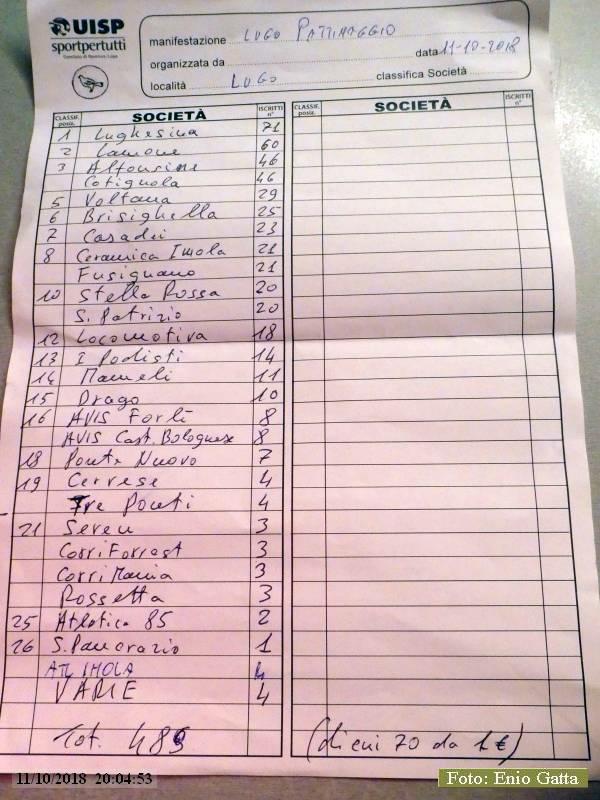 UISP
sportpertutti
manifestazione LUGO PATTINAGGIO
organizzata da data 11-10-2018
località LUGO classifica Società
CLASSIF. posiz. SOCIETÀ ISCRITTI n°
CLASSIF. posiz. SOCIETÀ ISCRITTI n°
1 Lughesina 71
2 Lamone 60
3 Alfonsine 46
Cotignola 46
5 Voltana 29
6 Brisighella 25
7 Casadei 23
8 Ceramica Imola 21
Fusignano 21
10 Stella Rossa 20
S. Patrizio 20
12 Locomotiva 18
13 I Podisti 14
14 Mameli 11
15 Drago 10
16 AVIS Forlì 8
AVIS Cast. Bolognese 8
18 Ponte Nuovo 7
19 Cervese 4
Tre Ponti 4
21 Seven 3
Corri Forrest 3
Corri Mania 3
Rossetta 3
25 Atletica 85 2
26 S. Pancrazio 1
ATL IMOLA
VARIE 4
Tot. 489 (di cui 70 da 1€)
11/10/2018 20:04:53
Foto: Enio Gatta